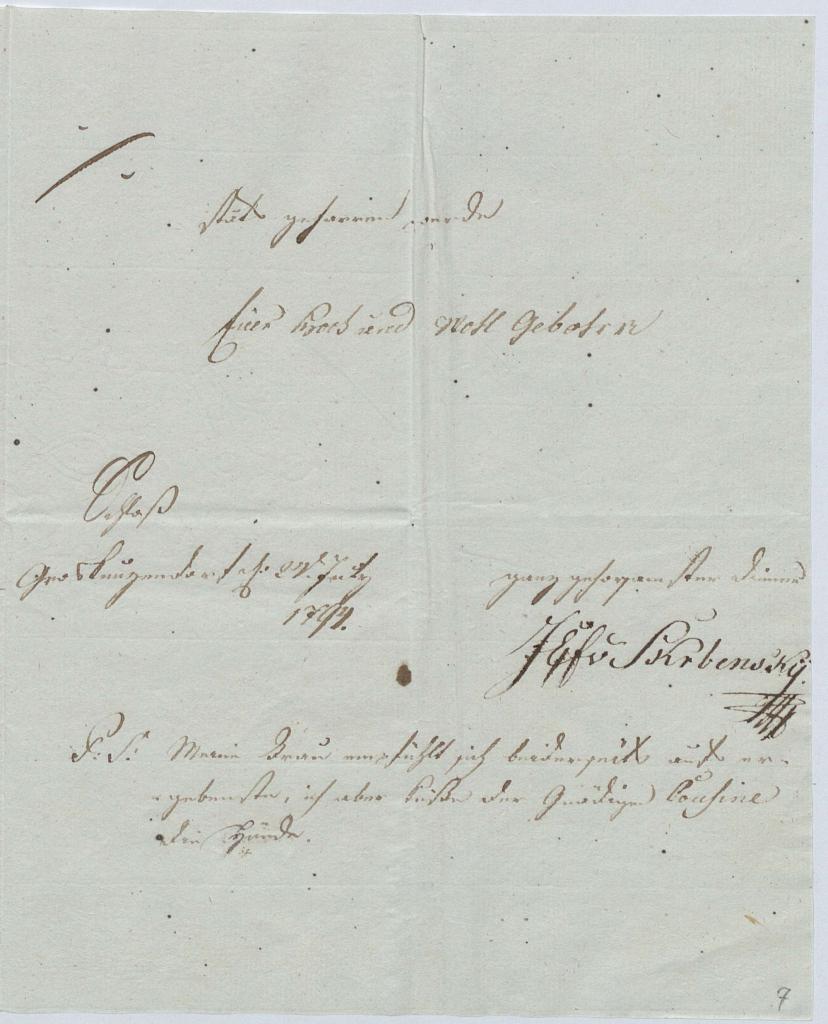 stäts geharren werde
Euer Hoch und Wohl Gebohrn
Schloß
Groskunzendorf d. July
179
ganz gehorsamster Diener
Skrbensky
P: S: Meine Frau empfühlt sich beiderseits aufs er-
gebenste, ich aber küße der Gnädigen Cousine
die Hände.
7